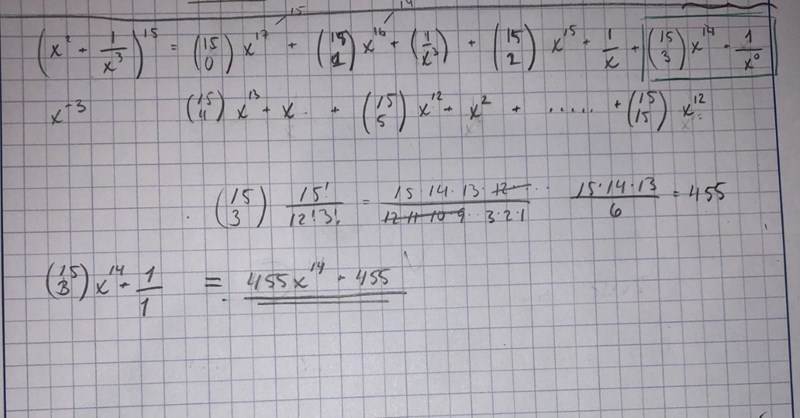 15 14
(x² + 1/x³)¹⁵ = (15 0) x¹⁷ + (15 1) x¹⁶ + (1/x³) + (15 2) x¹⁵ + 1/x + (15 3) x¹⁴ · 1/x⁰
x⁻³ (15 4) x¹³ + x + (15 5) x¹² + x² + ..... + (15 15) x¹²
(15 3) 15!/12!3! = 15·14·13·12/12·11·10·9··3·2·1 15·14·13/6 = 455
(15 3) x¹⁴ + 1/1 = 455x¹⁴ - 455